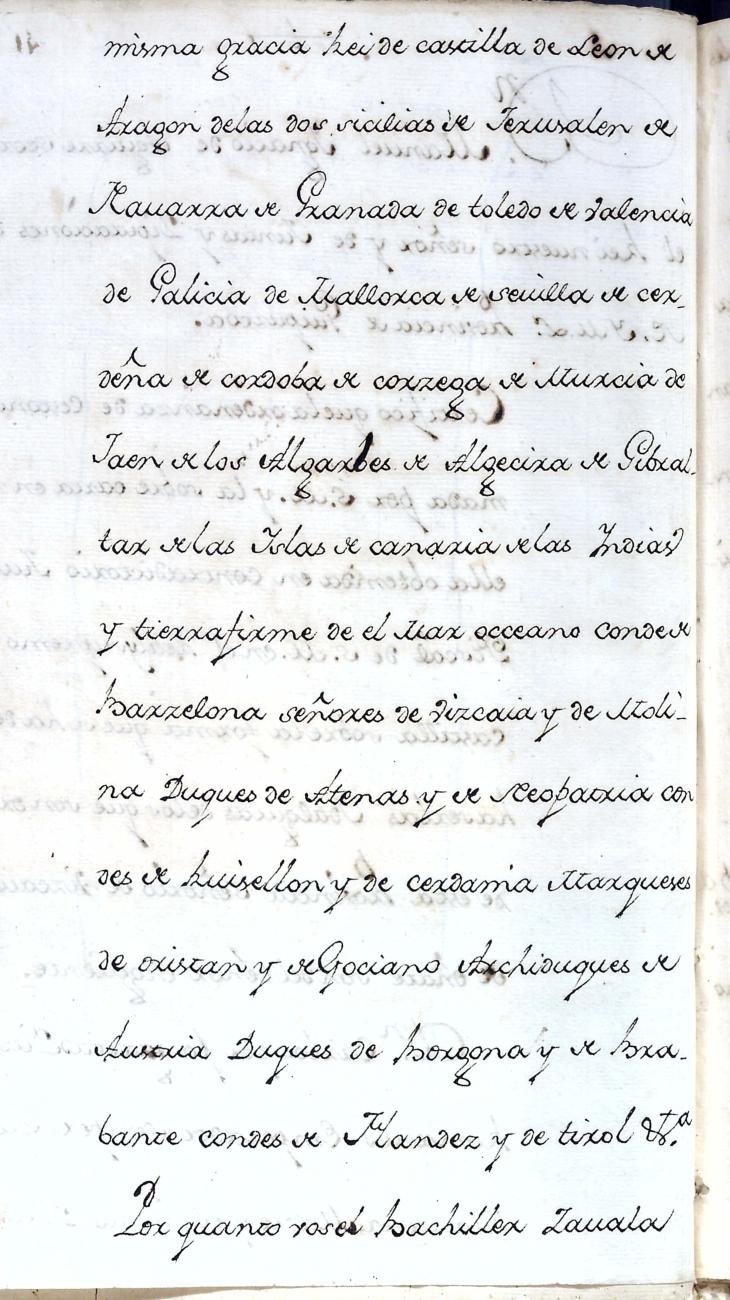 misma gracia Rei de castilla de Leon de
Aragon delas dos sicilias de Jerusalen de
Nauarra de Granada de toledo de valencia
de Galicia de Mallorca de seuilla de cer-
deña de cordoba de corzega de Murcia de
Jaen de los Algarbes de Algecira de Gibral-
tar de las Islas de canaria de las Indias
y tierrafirme de el Mar occeano conde de
barzelona señores de vizcaia y de Moli-
na Duques de Atenas y de Neopatria con
des de Ruisellon y de cerdania Marqueses
de oristan y de Gociano Archiduques de
Austria Duques de borgona y de bra-
bante condes de Flandez y de tirol &.ta
Por quanto vos el bachiller Zauala